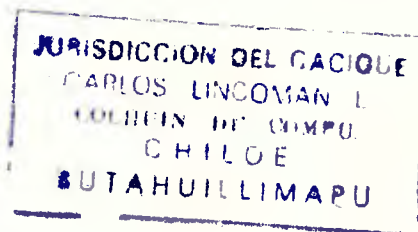 JURISDICCION DEL CACIQUE
CARLOS LINCOMAN L.
DE COMPU
CHILOE
BUTAHUILLIMAPU